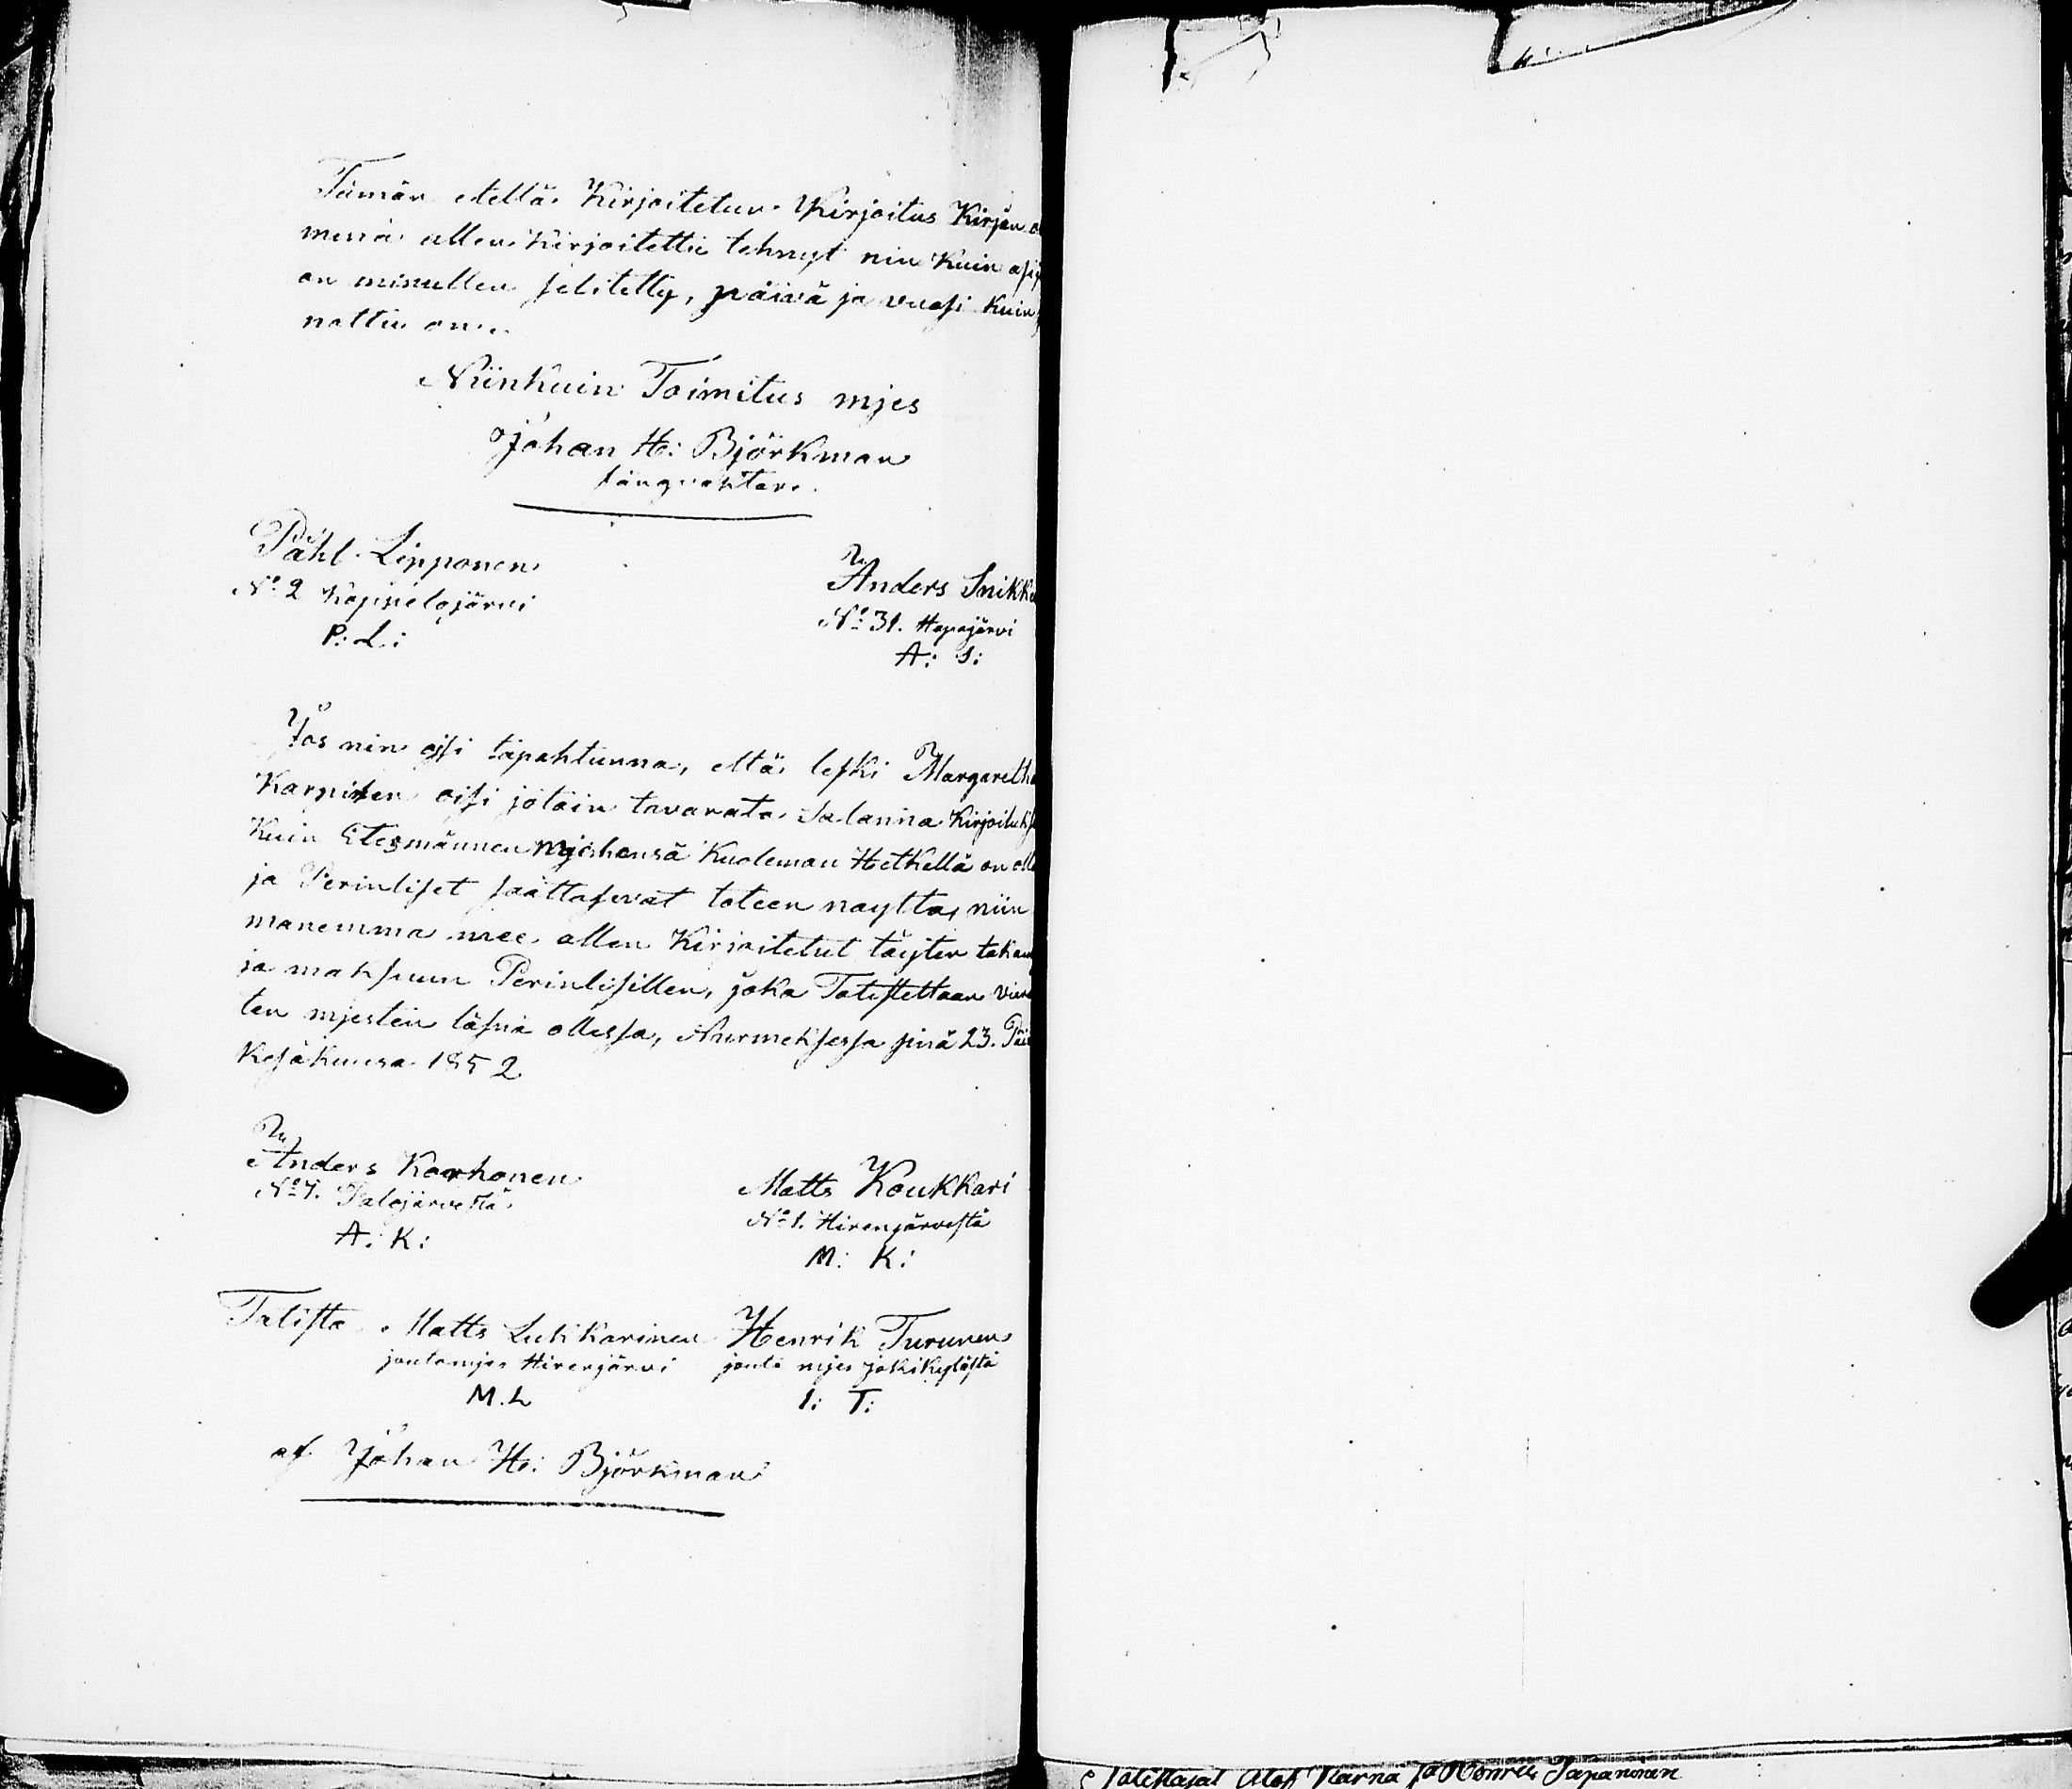 Tämän edellä Kirjoitetun Kirjoitus Kirjan o
minä allen Kirjoitettu tehnyt nin kuin asi
on minullen selitetty, päivä ja vuosi kuin
nattu on.
Niinkuin Toimitus mjes
Johan H: Björkman
Påhl Lipponen
No 2 Kopinelojärvi
P: L:
Anders Snikk
No 31. Hapajärvi
A: S:
Jos nin oisi tapahtunna, että leski Margareth
Karpinen oisi jotain tavarata Salanna Kirjoituks
Kuin Etesmännen Mjehensä Kuoleman Hetkellä on oll
ja Perinliset saattasevat toteen naytta, niin
manemma mee allen Kirjoitetut täyten takau
ja maksun Perinlisillen, joka Totistettaan vier
ten mjesten läsnä ollessa, Nurmeksessa sinä 23. Päi
Kesäkuusa 1852
Anders Korhonen
No 7. Palojärvestä
A: K:
Matts Koukkari
No 1. Hirenjärvestä
M: K:
Totista Matts Lukkarinen Henrik Turunen
joutomjes Hirenjärvi jouto mjes jokikylästä
M. L I: T:
af Johan H: Björkman
Totistajat Alof Kärnä ja Henrik Tapaninen